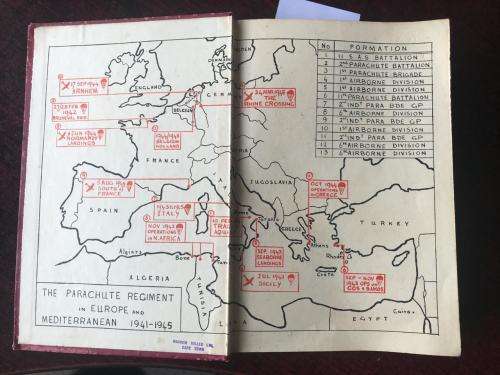 No FORMATION
1 U.S.A.S BATTALION
2 2ND PARACHUTE BATTALION
3 1ST PARACHUTE BRIGADE
1ST AIRBORNE DIVISION
1ST AIRBORNE DIVISION
PARACHUTE BATTALION
7 2ND INDT PARA BDE GP
8 6TH AIRBORNE DIVISION
2ND INDT PARA BDE GP
10 1ST AIRBORNE DIVISION
2ND INDT PARA BDE GP
12 6TH AIRBORNE DIVISION
13 6TH AIRBORNE DIVISION
ENGLAND
BELGIUM
GERM
17 SEP 1944
ARNHEM
24 MAR 1945
THE
RHINE CROSSING
27 FEB
1942
BRUNEVAL RAID
6 JUN 1944
NORMANDY
LANDINGS
BELGIUM
HOLLAND
FRANCE
SOUTH OF
FRANCE
SPAIN
ITALY
NOV 1942
OPERATIONS
IN N. AFRICA
10 FEB
YUGOSLAVIA
OCT 1944
OPERATIONS
IN GREECE
GREECE
TURKEY
SEP 1943
SEABORNE
LANDINGS
Athens
Rhodes
Crete
JUL 1943
SICILY
SEP - NOV
1943 OPS ON
COS & SAMOS
Algiers
Bone
ALGERIA
TUNISIA
EGYPT
Cairo
THE PARACHUTE REGIMENT
IN EUROPE AND
MEDITERRANEAN 1941-1945